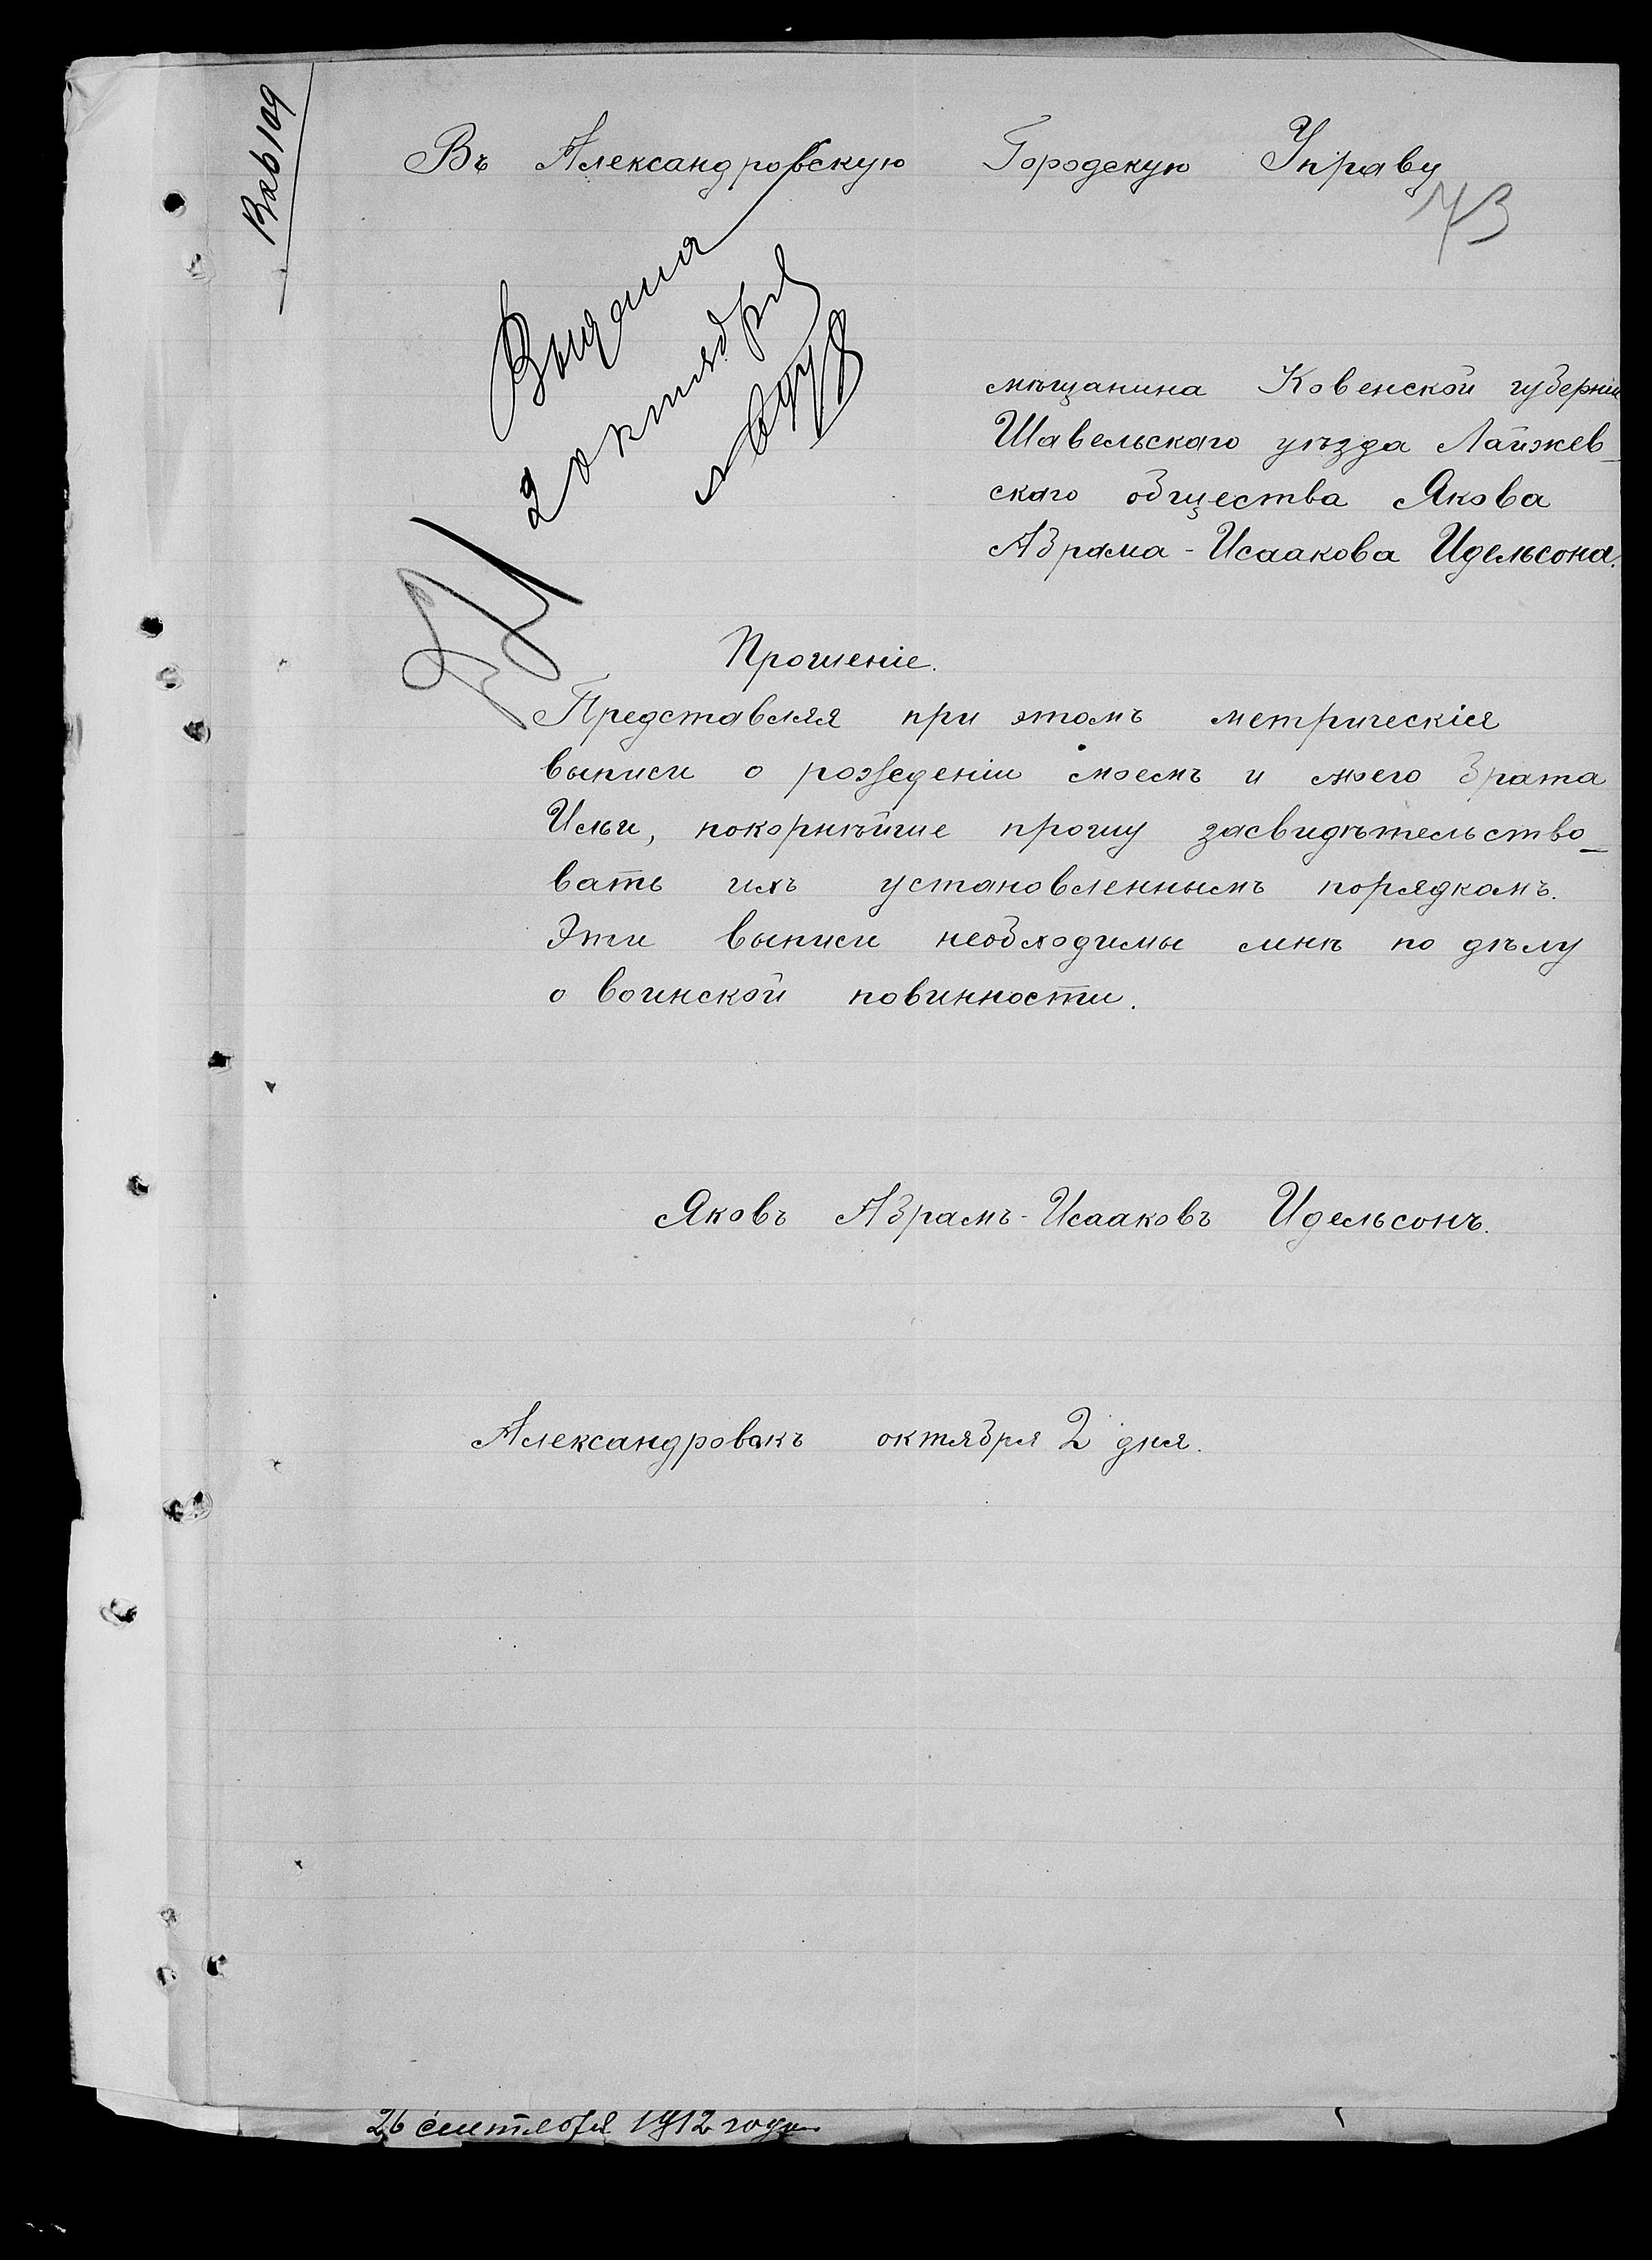 Въ Александровскую Городскую Управу
73
мѣщанина Ковенской губерніи
Шавельскаго уѣзда Лайжев-
скаго общества Якова
Абрама-Исаакова Идельсона.
2 октября
Прошеніе.
Представляя при этомъ метрическія
выписи о рожденіи моемъ и моего брата
Ильи, покорнѣйше прошу засвидѣтельство-
вать ихъ установленнымъ порядкомъ.
Эти выписи необходимы мнѣ по дѣлу
о воинской повинности.
Яковъ Абрамъ-Исааковъ Идельсонъ.
Александровскъ октября 2 дня.
26 сентября 1912 года